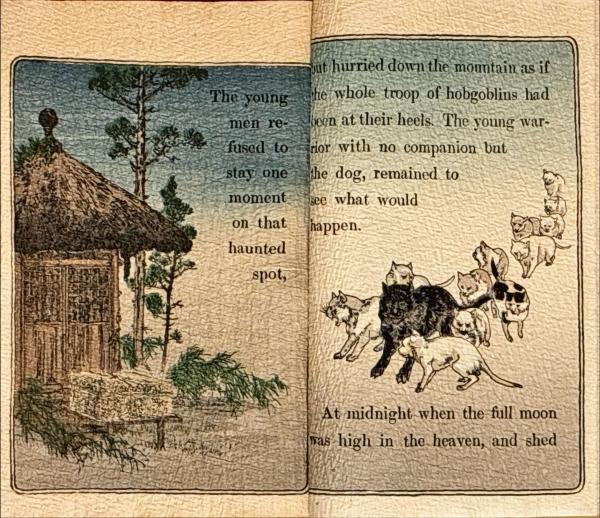 The young
men re-
fused to
stay one
moment
on that
haunted
spot,
but hurried down the mountain as if
the whole troop of hobgoblins had
been at their heels. The young war-
rior with no companion but
the dog, remained to
see what would
happen.
At midnight when the full moon
was high in the heaven, and shed